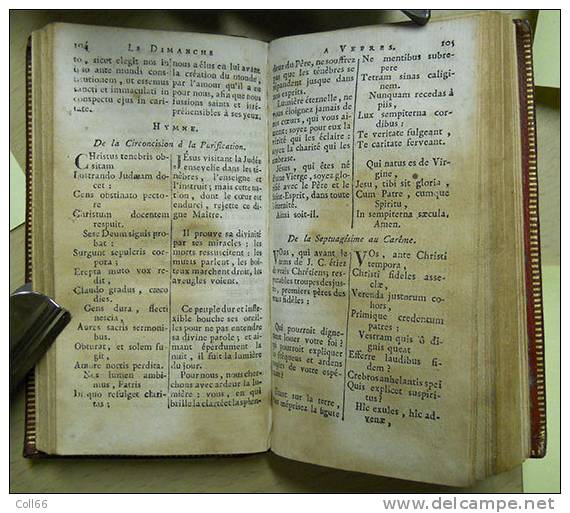 104 LE DIMANCHE
to, sicut elegit nos in
ipso ante mundi cons-
titutionem, ut essemus
sancti et immaculati in
conspectu ejus in cari-
tate.
nous a élus en lui avant
la création du monde,
par l'amour qu'il a eu
pour nous, afin que nous
fussions saints et irré-
préhensibles à ses yeux.
HYMNE.
De la Circoncision à la Purification.
CHristus tenebris ob-
sitam
Lustrando Judæam do-
cet:
Gens obstinato pecto-
re
Christum docentem
respuit.
Sese Deum signis pro-
bat:
Surgunt sepulcris cor-
pora;
Erepta muto vox red-
dit,
Claudo gradus, cæco
dies.
Gens dura, flecti
nescia,
Aures sacris sermoni-
bus
Obturat, et solem fu-
git,
Amore noctis perdita.
Nos lumen ambi-
mus, Patris
In quo refulget clari-
tas;
JEsus visitant la Judée
ensevelie dans les té-
nèbres, l'enseigne et
l'instruit; mais cette na-
tion, dont le cœur est
endurci, rejette ce di-
gne Maître.
Il prouve sa divinité
par ses miracles: les
morts ressuscitent; les
muets parlent, les boi-
teux marchent droit, les
aveugles voient.
Ce peuple dur et infle-
xible bouche ses oreil-
les pour ne pas entendre
sa divine parole; et ai-
mant éperdument la
nuit, il fuit la lumière
du jour.
Pour nous, nous cher-
chons avec ardeur la lu-
mière: vous, en qui
brille la clarté et la splen-
A VEPRES. 105
deur du Père, ne souffrez
pas que les ténèbres se
répandent jusque dans
nos esprits.
Lumière éternelle, ne
vous éloignez jamais de
nos cœurs, qui vous ai-
ment: soyez pour eux la
vérité qui les éclaire;
soyez la charité qui les
embrase.
Jésus, qui êtes né
d'une Vierge, soyez glo-
rifié avec le Père et le
Saint-Esprit, dans toute
l'éternité.
Ainsi soit-il.
Ne mentibus subre-
pere
Tetram sinas caligi-
nem.
Nunquam recedas à
piis,
Lux sempiterna cor-
dibus:
Te veritate fulgeant,
Te caritate ferveant.
Qui natus es de Vir-
gine,
Jesu, tibi sit gloria,
Cum Patre, cumque
Spiritu,
In sempiterna sæcula.
Amen.
De la Septuagésime au Carême.
VOus, qui avant la
venue de J. C. étiez
de vrais Chrétiens; res-
pectables troupes des jus-
tes, premiers pères des
vrais fidèles:
Qui pourroit digne-
ment louer votre foi?
qui pourroit expliquer
les fréquens et ardens
soupirs de votre espé-
rance?
Étant sur la terre,
vous méprisez la figure
VOs, ante Christi
tempora,
Christi fideles asse-
clæ,
Verenda justorum co-
hors,
Primique credentum
patres:
Vestram quis ô di-
gnis queat
Efferre laudibus fi-
dem?
Crebros anhelantis spei
Quis explicet suspiri-
tus?
Hic exules, hic ad-
venæ,
Coll66
© delcampe.net